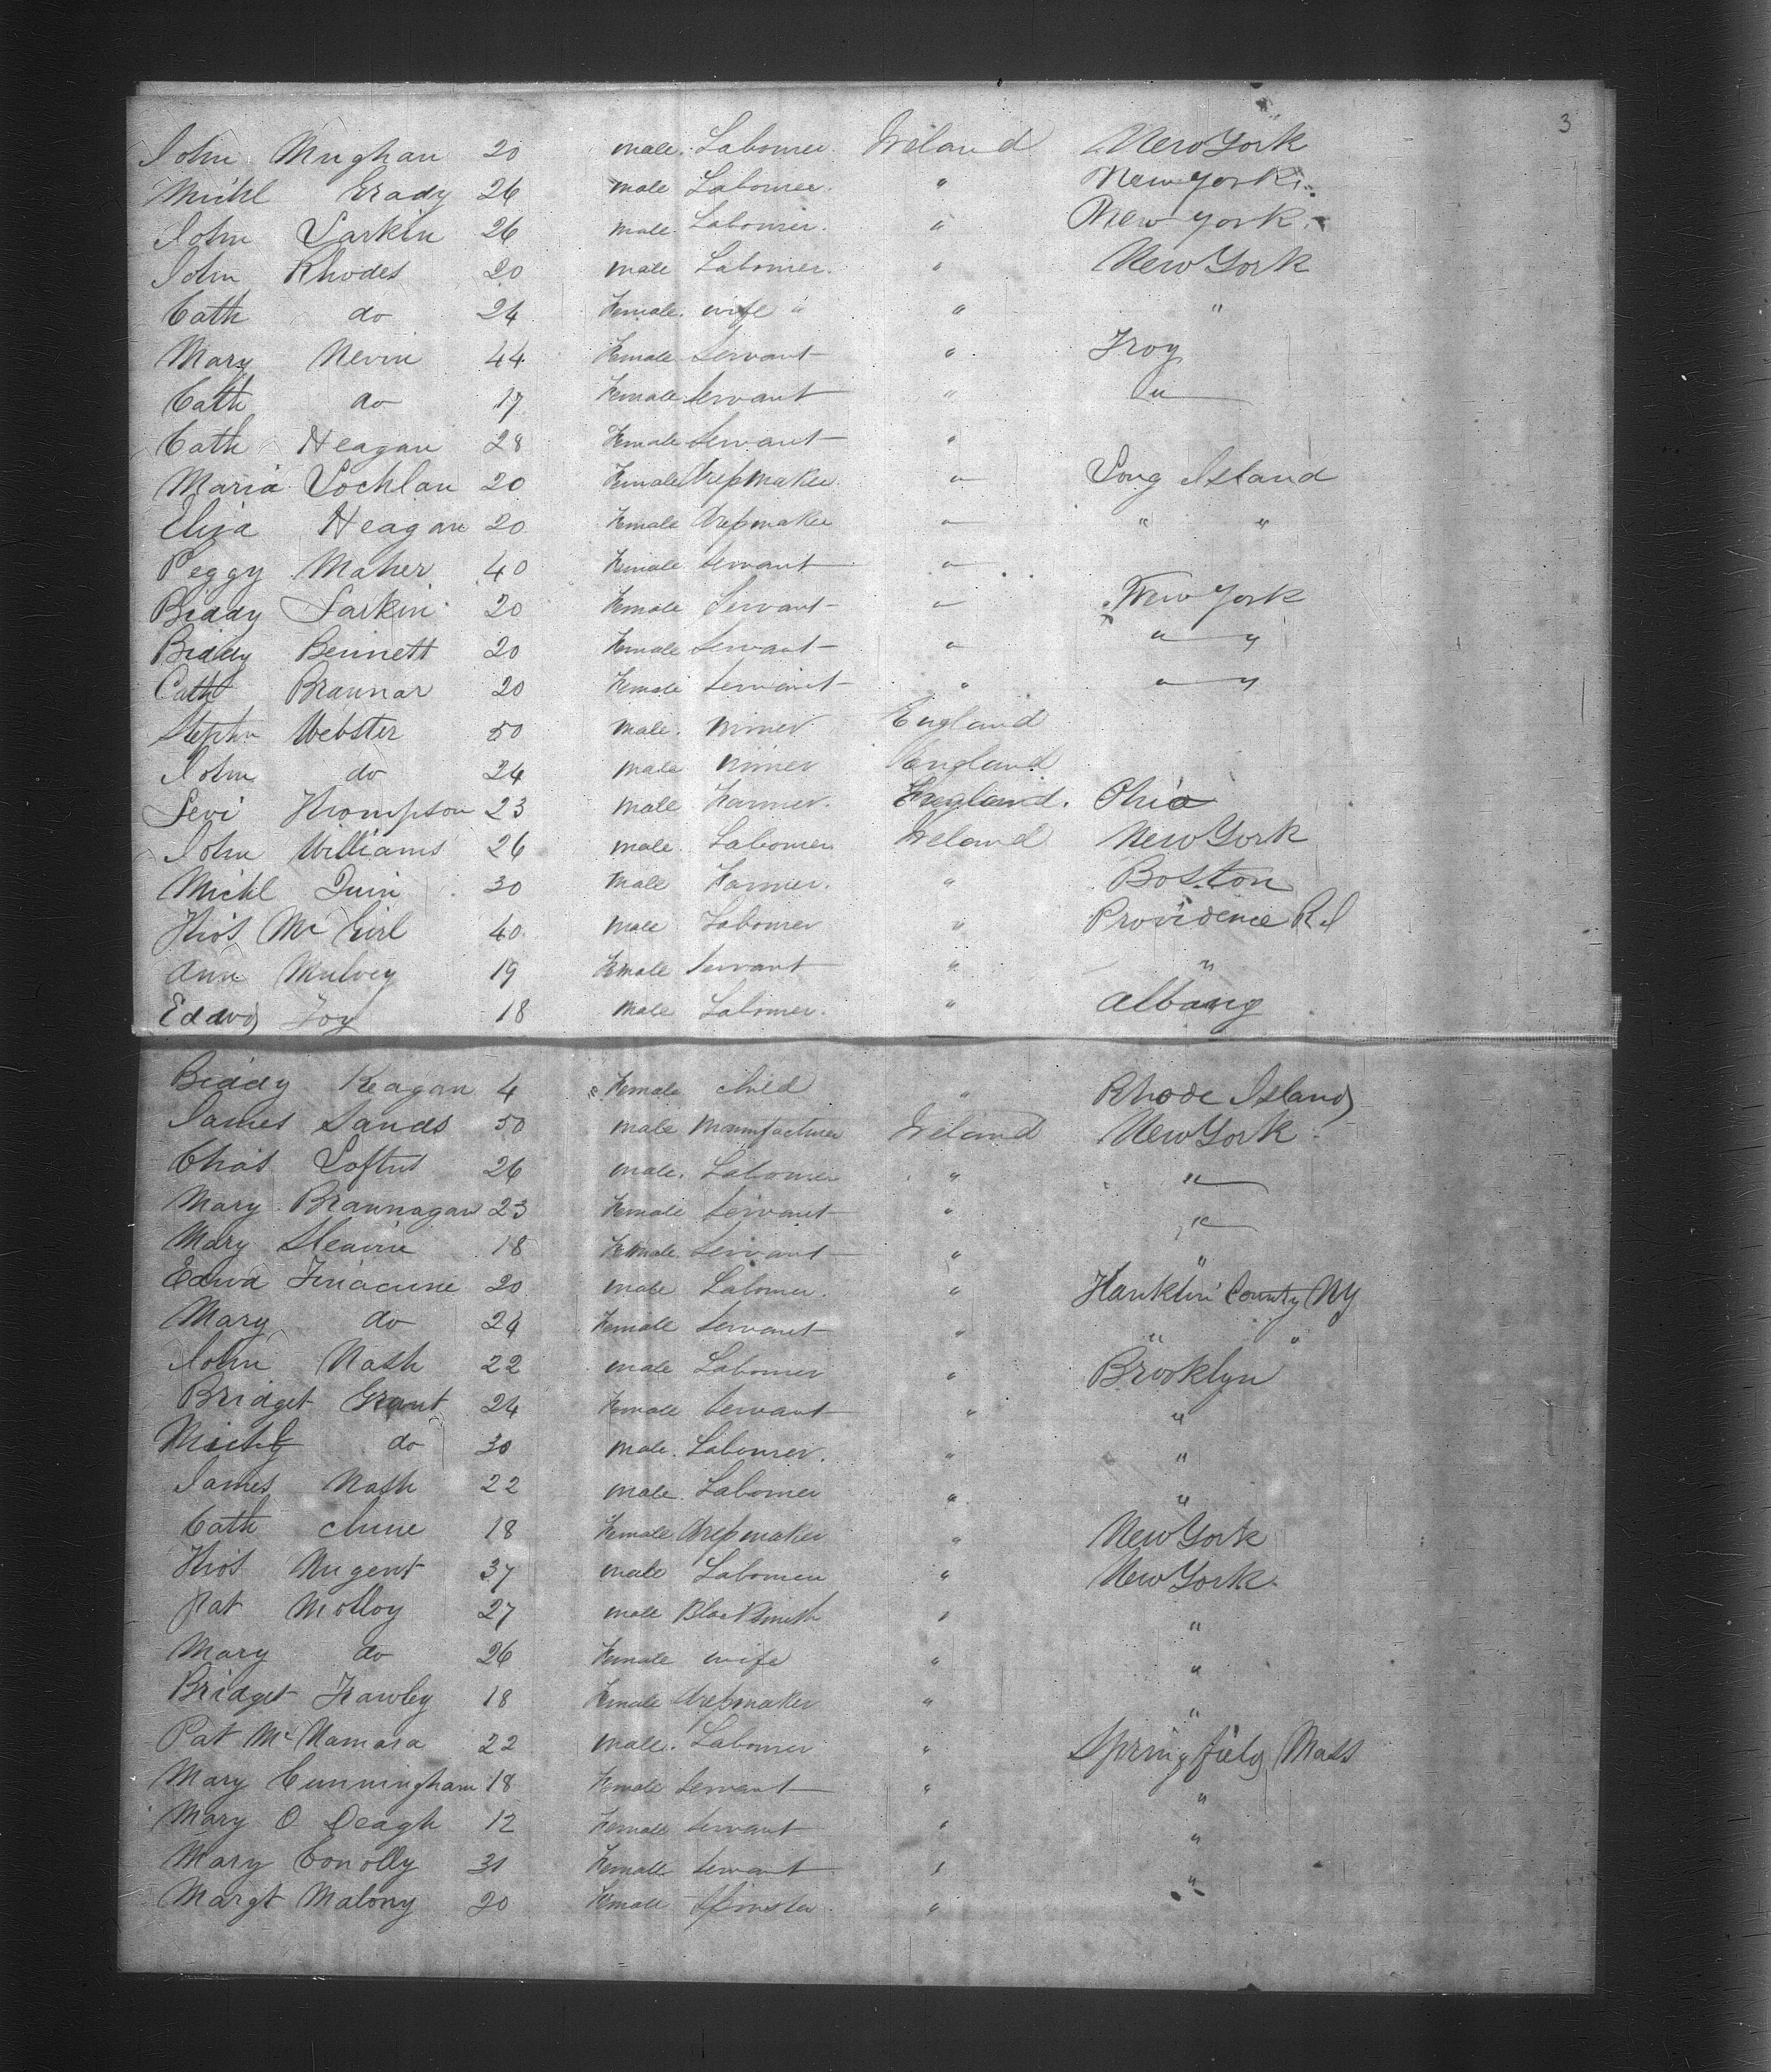 3
John Mughan 20 male Labourer Ireland New York
Michl Grady 26 male Labourer " New York
John Larkin 26 male Labourer " New York
John Rhodes 20 male Labourer " New York
Cath do 24 Female wife " " "
Mary Nevin 44 Female Servant " Troy
Cath do 17 Female Servant " "
Cath Heagan 28 Female Servant "
Maria Lochlan 20 Female Dressmaker " Long Island
Eliza Heagan 20 Female Dressmaker " " "
Peggy Maher 40 Female Servant "
Biddy Larkin 20 Female Servant " New York
Biddy Bennett 20 Female Servant " " "
Cath Brannar 20 Female Servant " " "
Stephn Webster 50 male miner England
John do 24 male miner England
Levi Thompson 23 male Farmer England Ohio
John Williams 26 male Labourer Ireland New York
Michl Quin 30 male Farmer " Boston
Thos Mc Girl 40 male Labourer " Providence R.I
Ann Mulvey 19 Female Servant " "
Edwd Foy 18 male Labourer " Albany
Biddy Keagan 4 Female child " Rhode Island
James Sands 50 male Manufacturer Ireland New York
Chas Loftus 26 male Labourer " "
Mary Brannagan 23 Female Servant " "
Mary Sleavin 18 Female Servant " "
Edwd 20 male Labourer " County NY
Mary do 24 Female Servant " " "
John Nash 22 male Labourer " Brooklyn
Bridget Grant 24 Female Servant " "
Michl do 30 male Labourer " "
James Nash 22 male Labourer " "
Cath Clune 18 Female Dressmaker " New York
Thos Nugent 37 male Labourer " New York
Pat Molloy 27 male Blacksmith " "
Mary do 26 Female wife " "
Bridget Frawley 18 Female Dressmaker " "
Pat Mc Namara 22 male Labourer " Springfield Mass
Mary Cunningham 18 Female Servant " "
Mary O Deagh 12 Female Servant " "
Mary Conolly 31 Female Servant " "
Margt Malony 20 Female Spinster "